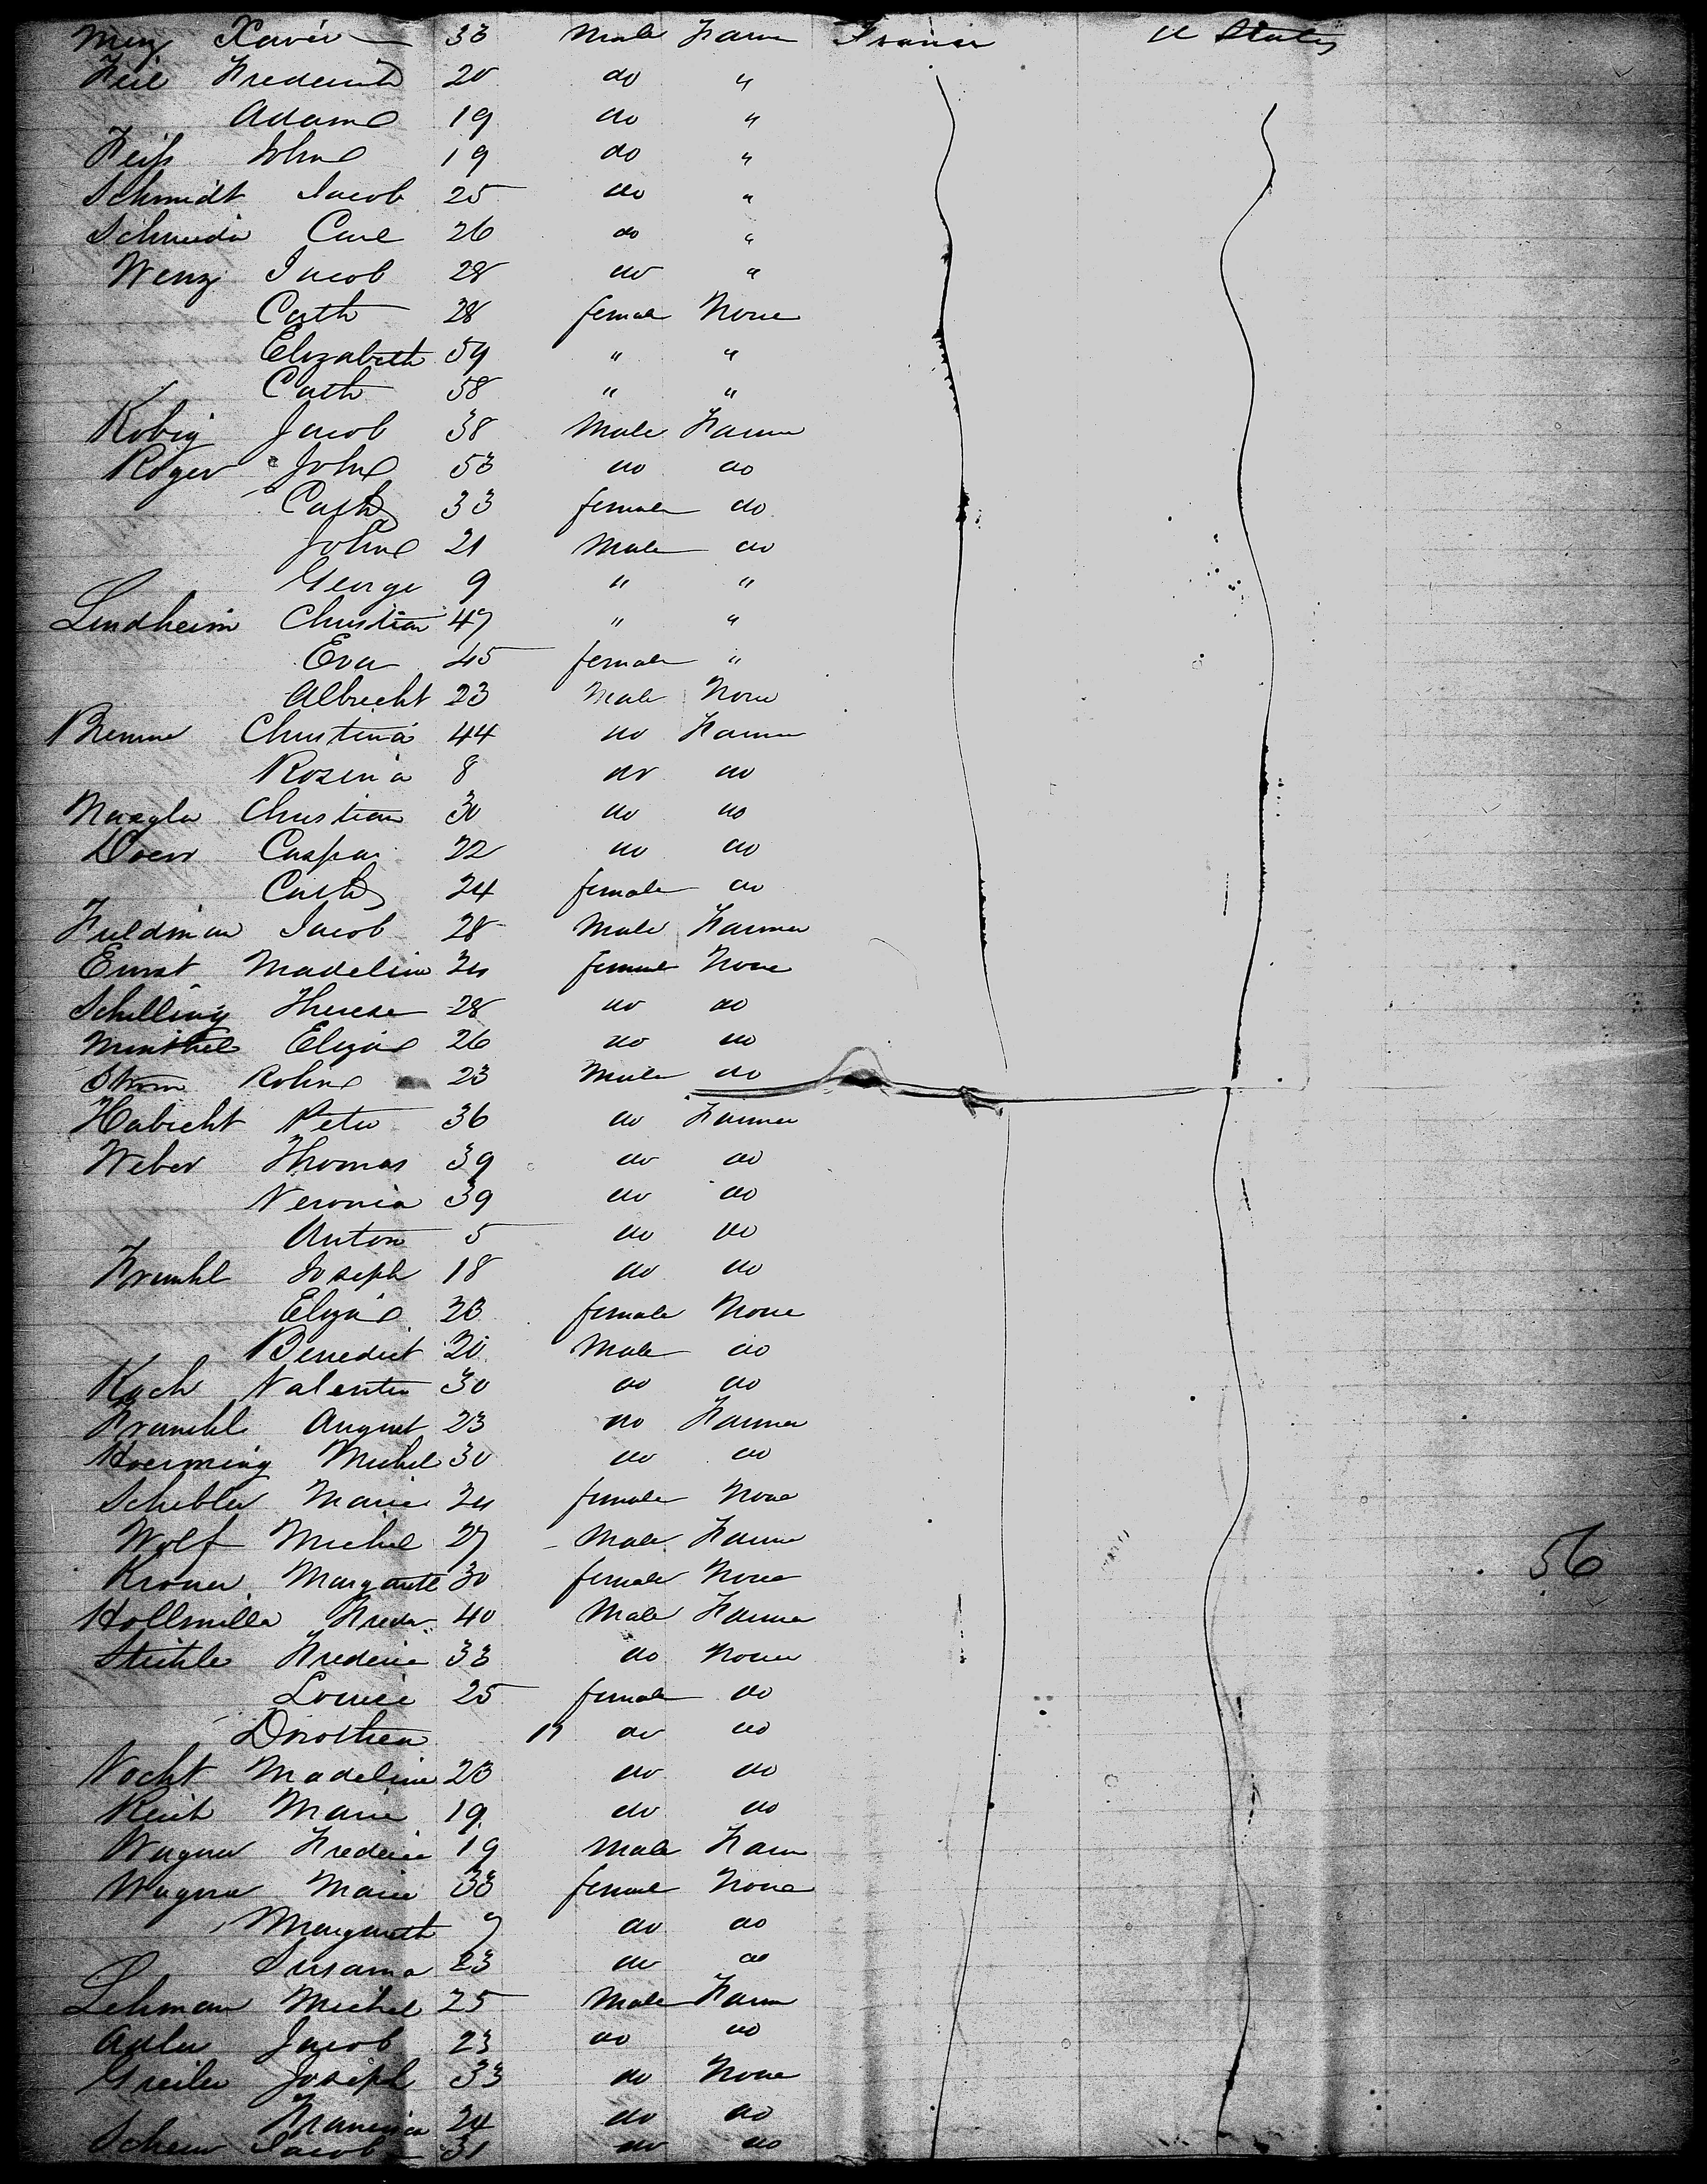 Menz Xavier 33 Male Farm France U States
Feil Frederick 20 do "
Adam 19 do "
Feiss John 19 do "
Schmidt Jacob 25 do "
Schneider Carl 26 do "
Wenz Jacob 28 do "
Cath 28 female None
Elizabeth 59 " "
Cath 58 " "
Kobig Jacob 38 Male Farmer
Roger John 53 do do
Cath 33 female do
John 21 Male do
George 9 " "
Lindheim Christian 47 " "
Eva 45 female "
Albrecht 23 Male None
Christina 44 do Farmer
Rosina 8 do do
Naegler Christian 30 do do
Doerr Caspar 22 do do
Cath 24 female do
Fieldman Jacob 28 Male Farmer
Ernst Madeline 24 female None
Schilling Therese 28 do do
Eliza 26 do do
23 Male do
Habicht Peter 36 do Farmer
Weber Thomas 39 do do
Veronia 39 do do
Anton 5 do do
Joseph 18 do do
Eliza 23 female None
Benedict 20 Male do
Koch Valentin 30 do do
August 23 do Farmer
Hoerming Michel 30 do do
Schibler Marie 24 female None
Wolf Michel 27 Male Farmer
Kroner Margareth 30 female None
56
Hollmiller Freder 40 Male Farmer
Stickle Frederic 33 do None
Louise 25 female do
Dorothea 11 do do
Vocht Madeline 23 do do
Reich Marie 19 do do
Wagner Frederic 19 Male Farm
Wagner Marie 33 female None
Margareth 7 do do
Susanna 23 do do
Lehman Michel 25 Male Farm
Adler Jacob 23 do do
Greiler Joseph 33 do None
Francisca 24 do do
Jacob 31 do do